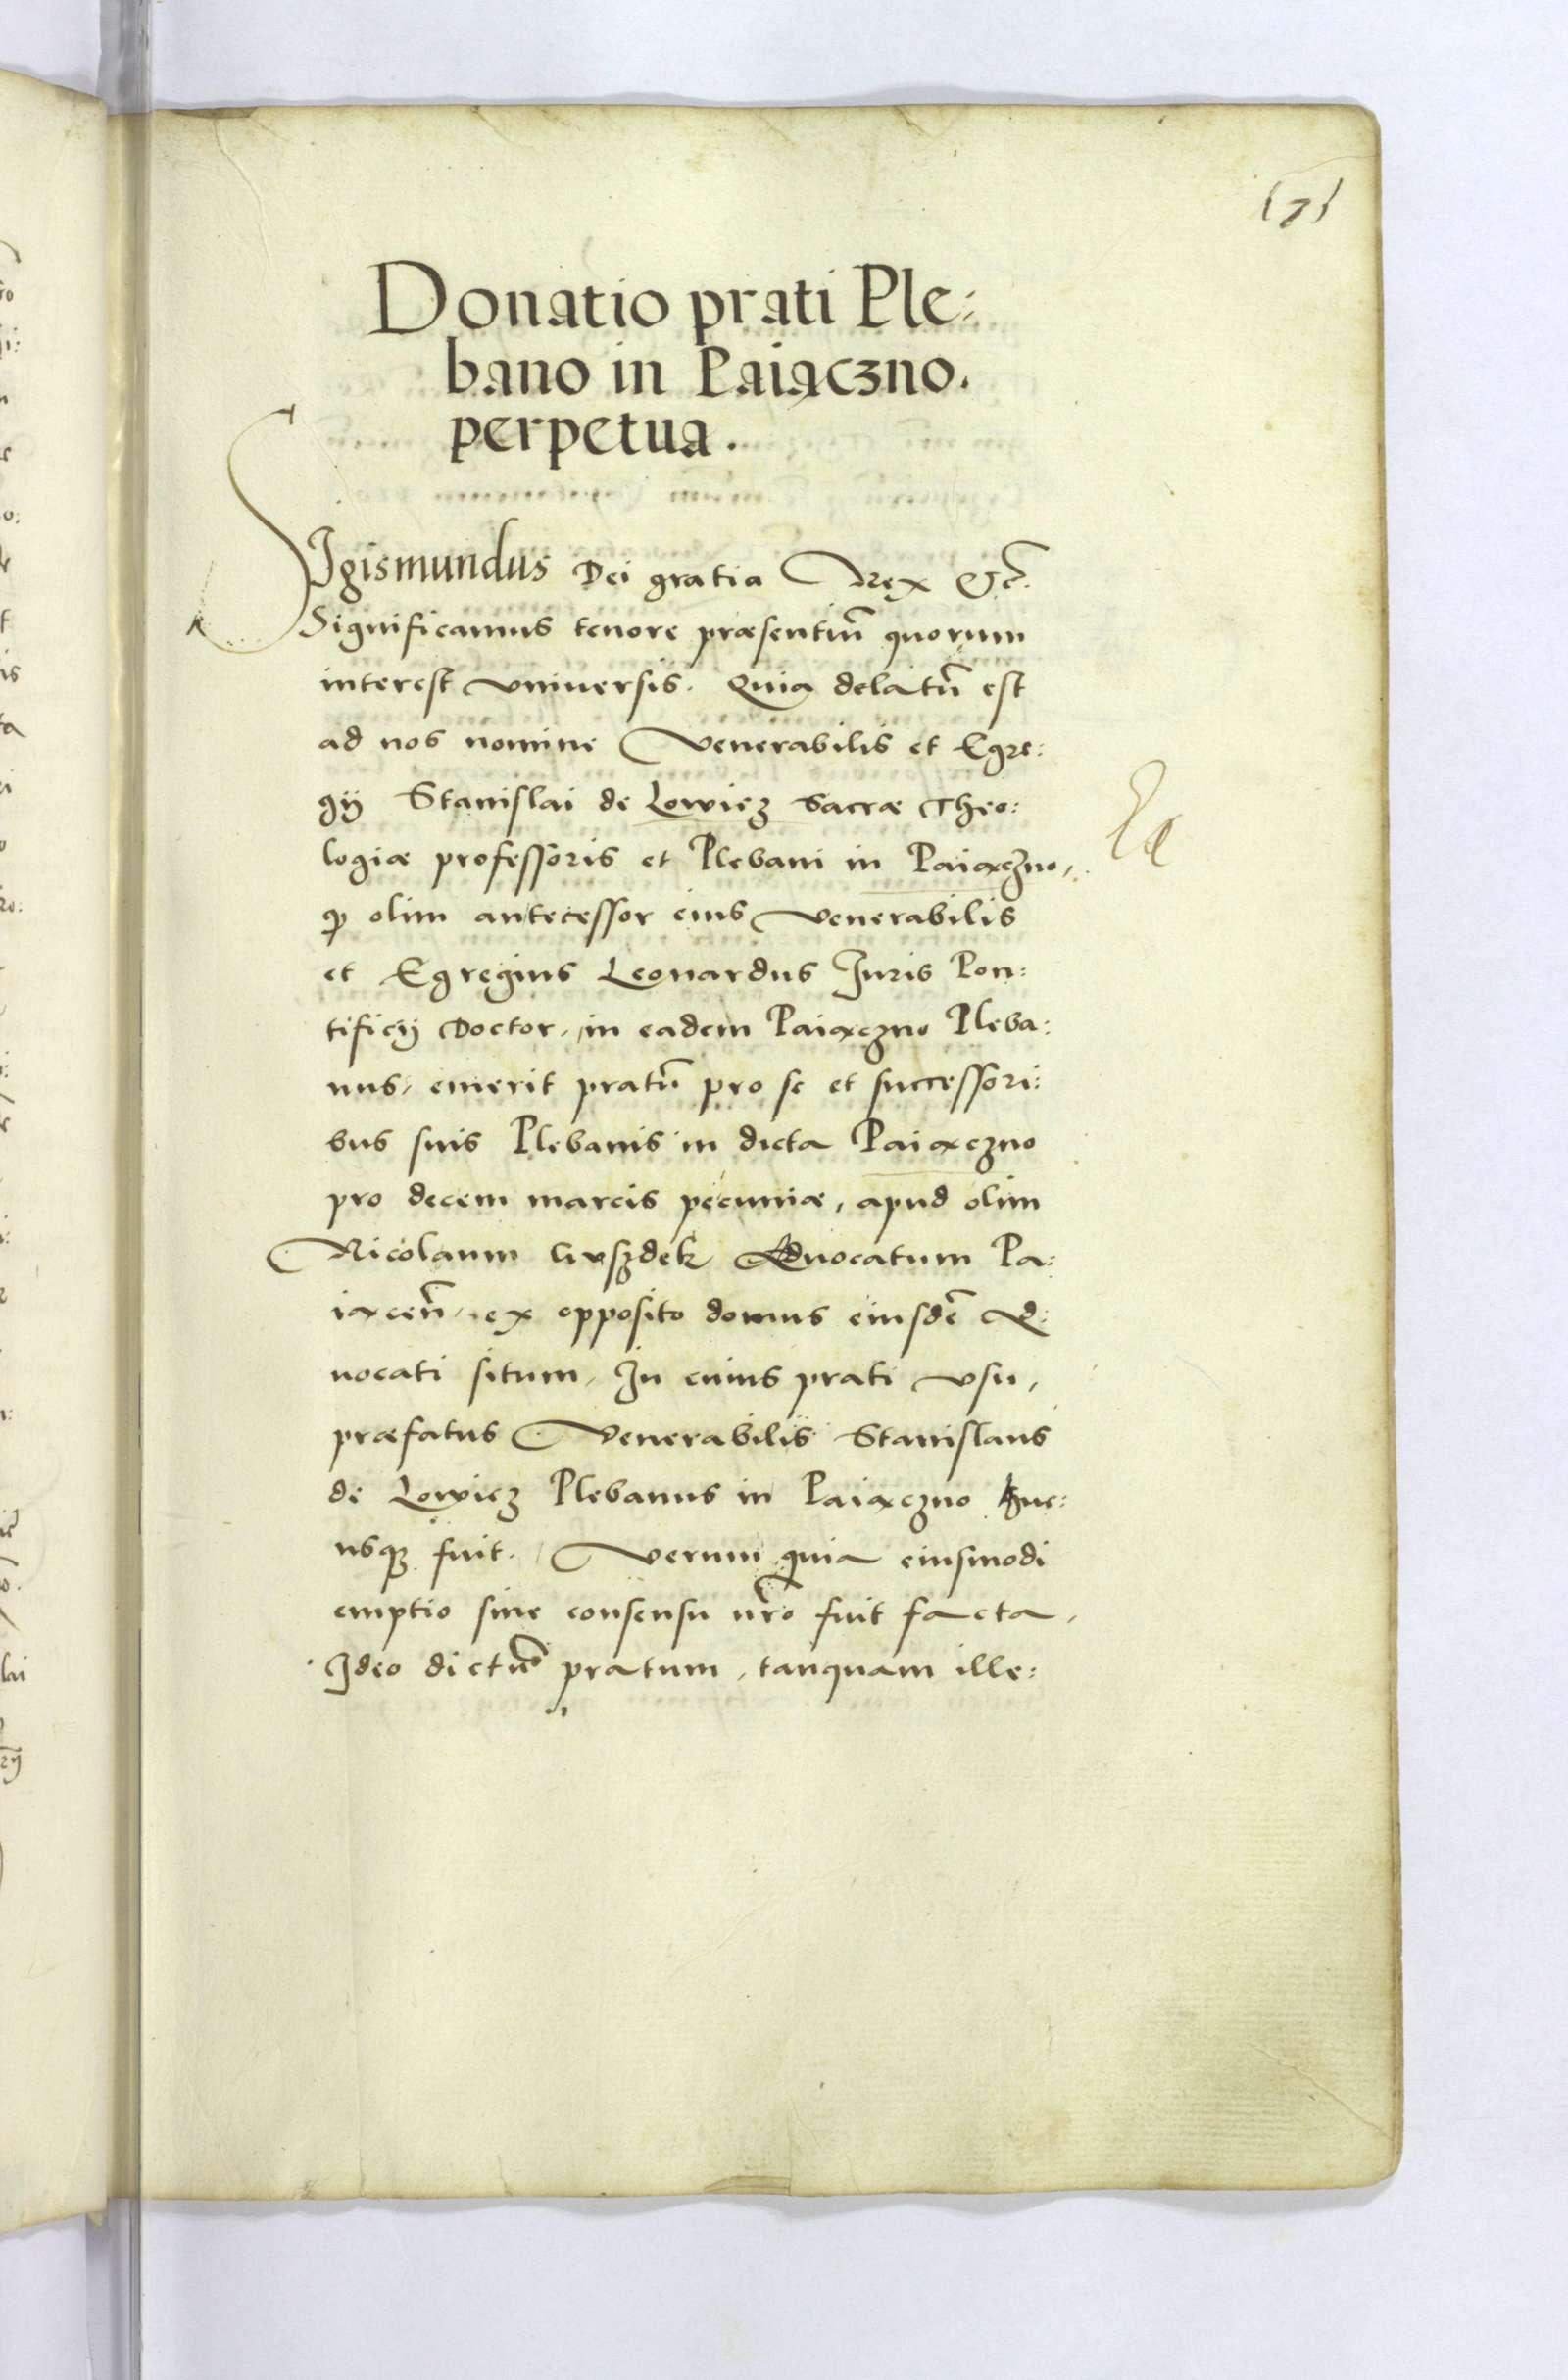 171
Donatio prati Ple:
bano in Paiączno.
perpetua.
Sigismundus Dei gratia Rex &c̃.
Significamus tenore præsentiũ quorum
interest vniuersis. Quia delatũ est
ad nos nomine Venerabilis et Egre:
gij Stanislai de Lowicz Sacræ Theo:
logiæ professoris et Plebani in Paiączno,
olim antecessor eius Venerabilis
et Egregius Leonardus Juris Pon:
tificij Doctor, in eadem Paiączno Pleba:
nus, emerit pratũ pro se et successori:
bus suis Plebanis in dicta Paiączno
pro decem marcis pecuniæ, apud olim
Nicolaum Aduocatum Pa:
iąceñ, ex opposito domus eiusdẽ Ad:
uocati situm, In cuius prati vsu,
præfatus Venerabilis Stanislaus
de Lowicz Plebanus in Paiączno huc:
usq3 fuit. Verum quia eiusmodi
emptio sine consensu nr̃o fuit facta,
Ideo dictũ pratum, tanquam ille: